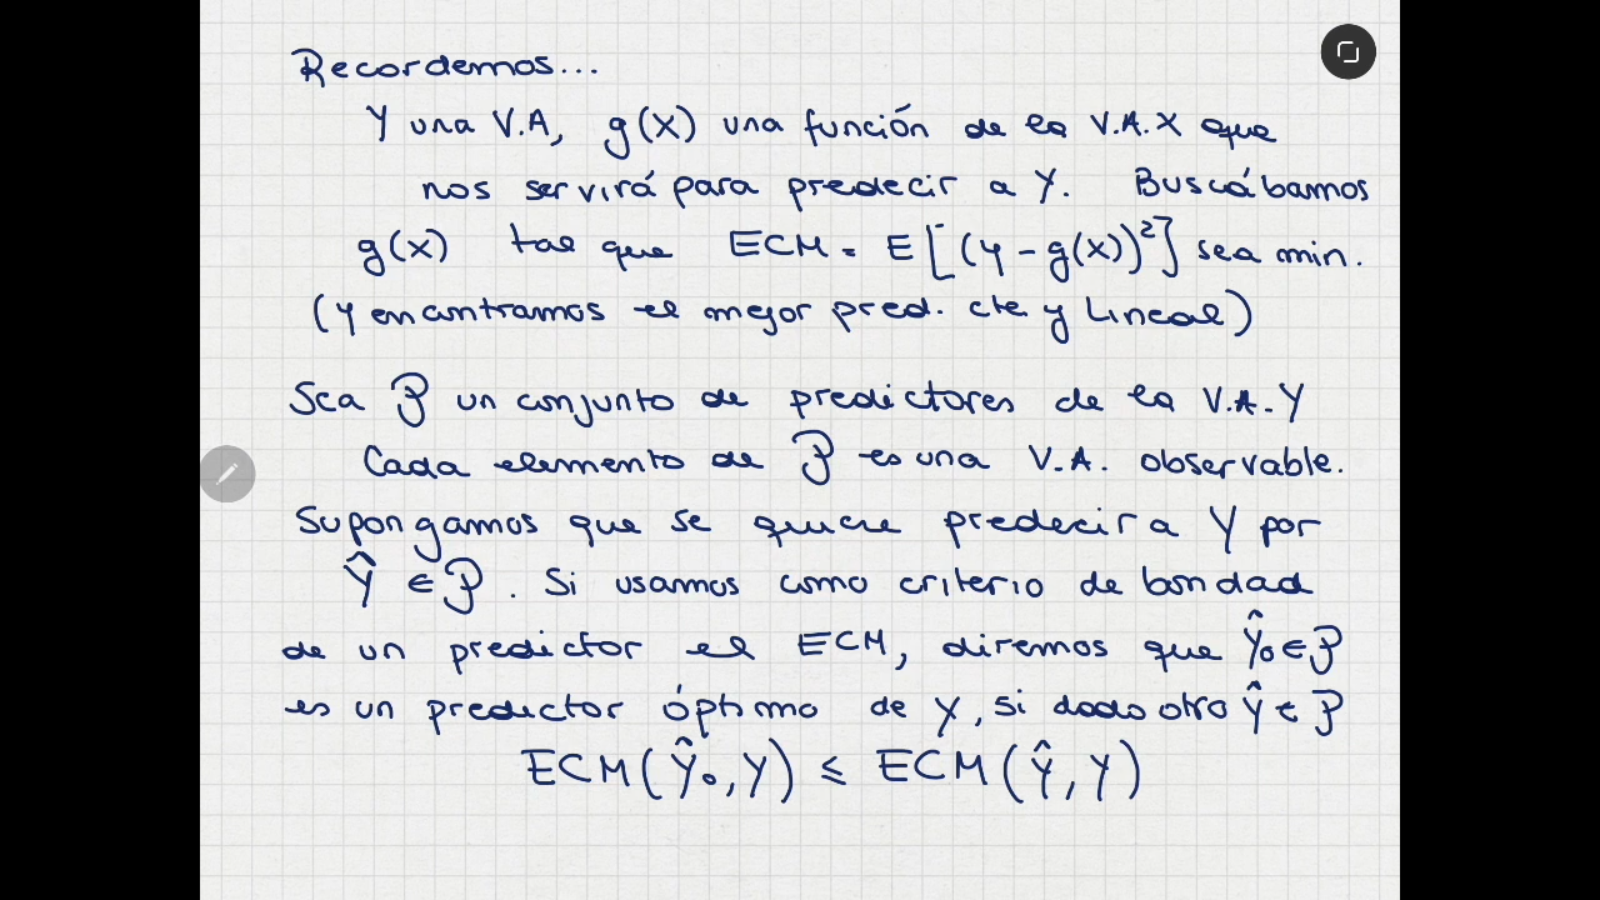 Recordemos...
Y una V.A, g(X) una función de la V.A. X que
nos servirá para predecir a Y. Buscábamos
g(x) tal que ECM = E[(Y - g(x))²] sea min.
(y encontramos el mejor pred. cte y Lineal)
Sea P un conjunto de predictores de la V.A. Y
Cada elemento de P es una V.A. observable.
Supongamos que se quiere predecir a Y por
Ŷ ∈ P. Si usamos como criterio de bondad
de un predictor el ECM, diremos que Ŷ₀ ∈ P
es un predictor óptimo de Y, si dado otro Ŷ ∈ P
ECM(Ŷ₀, Y) ≤ ECM(Ŷ, Y)